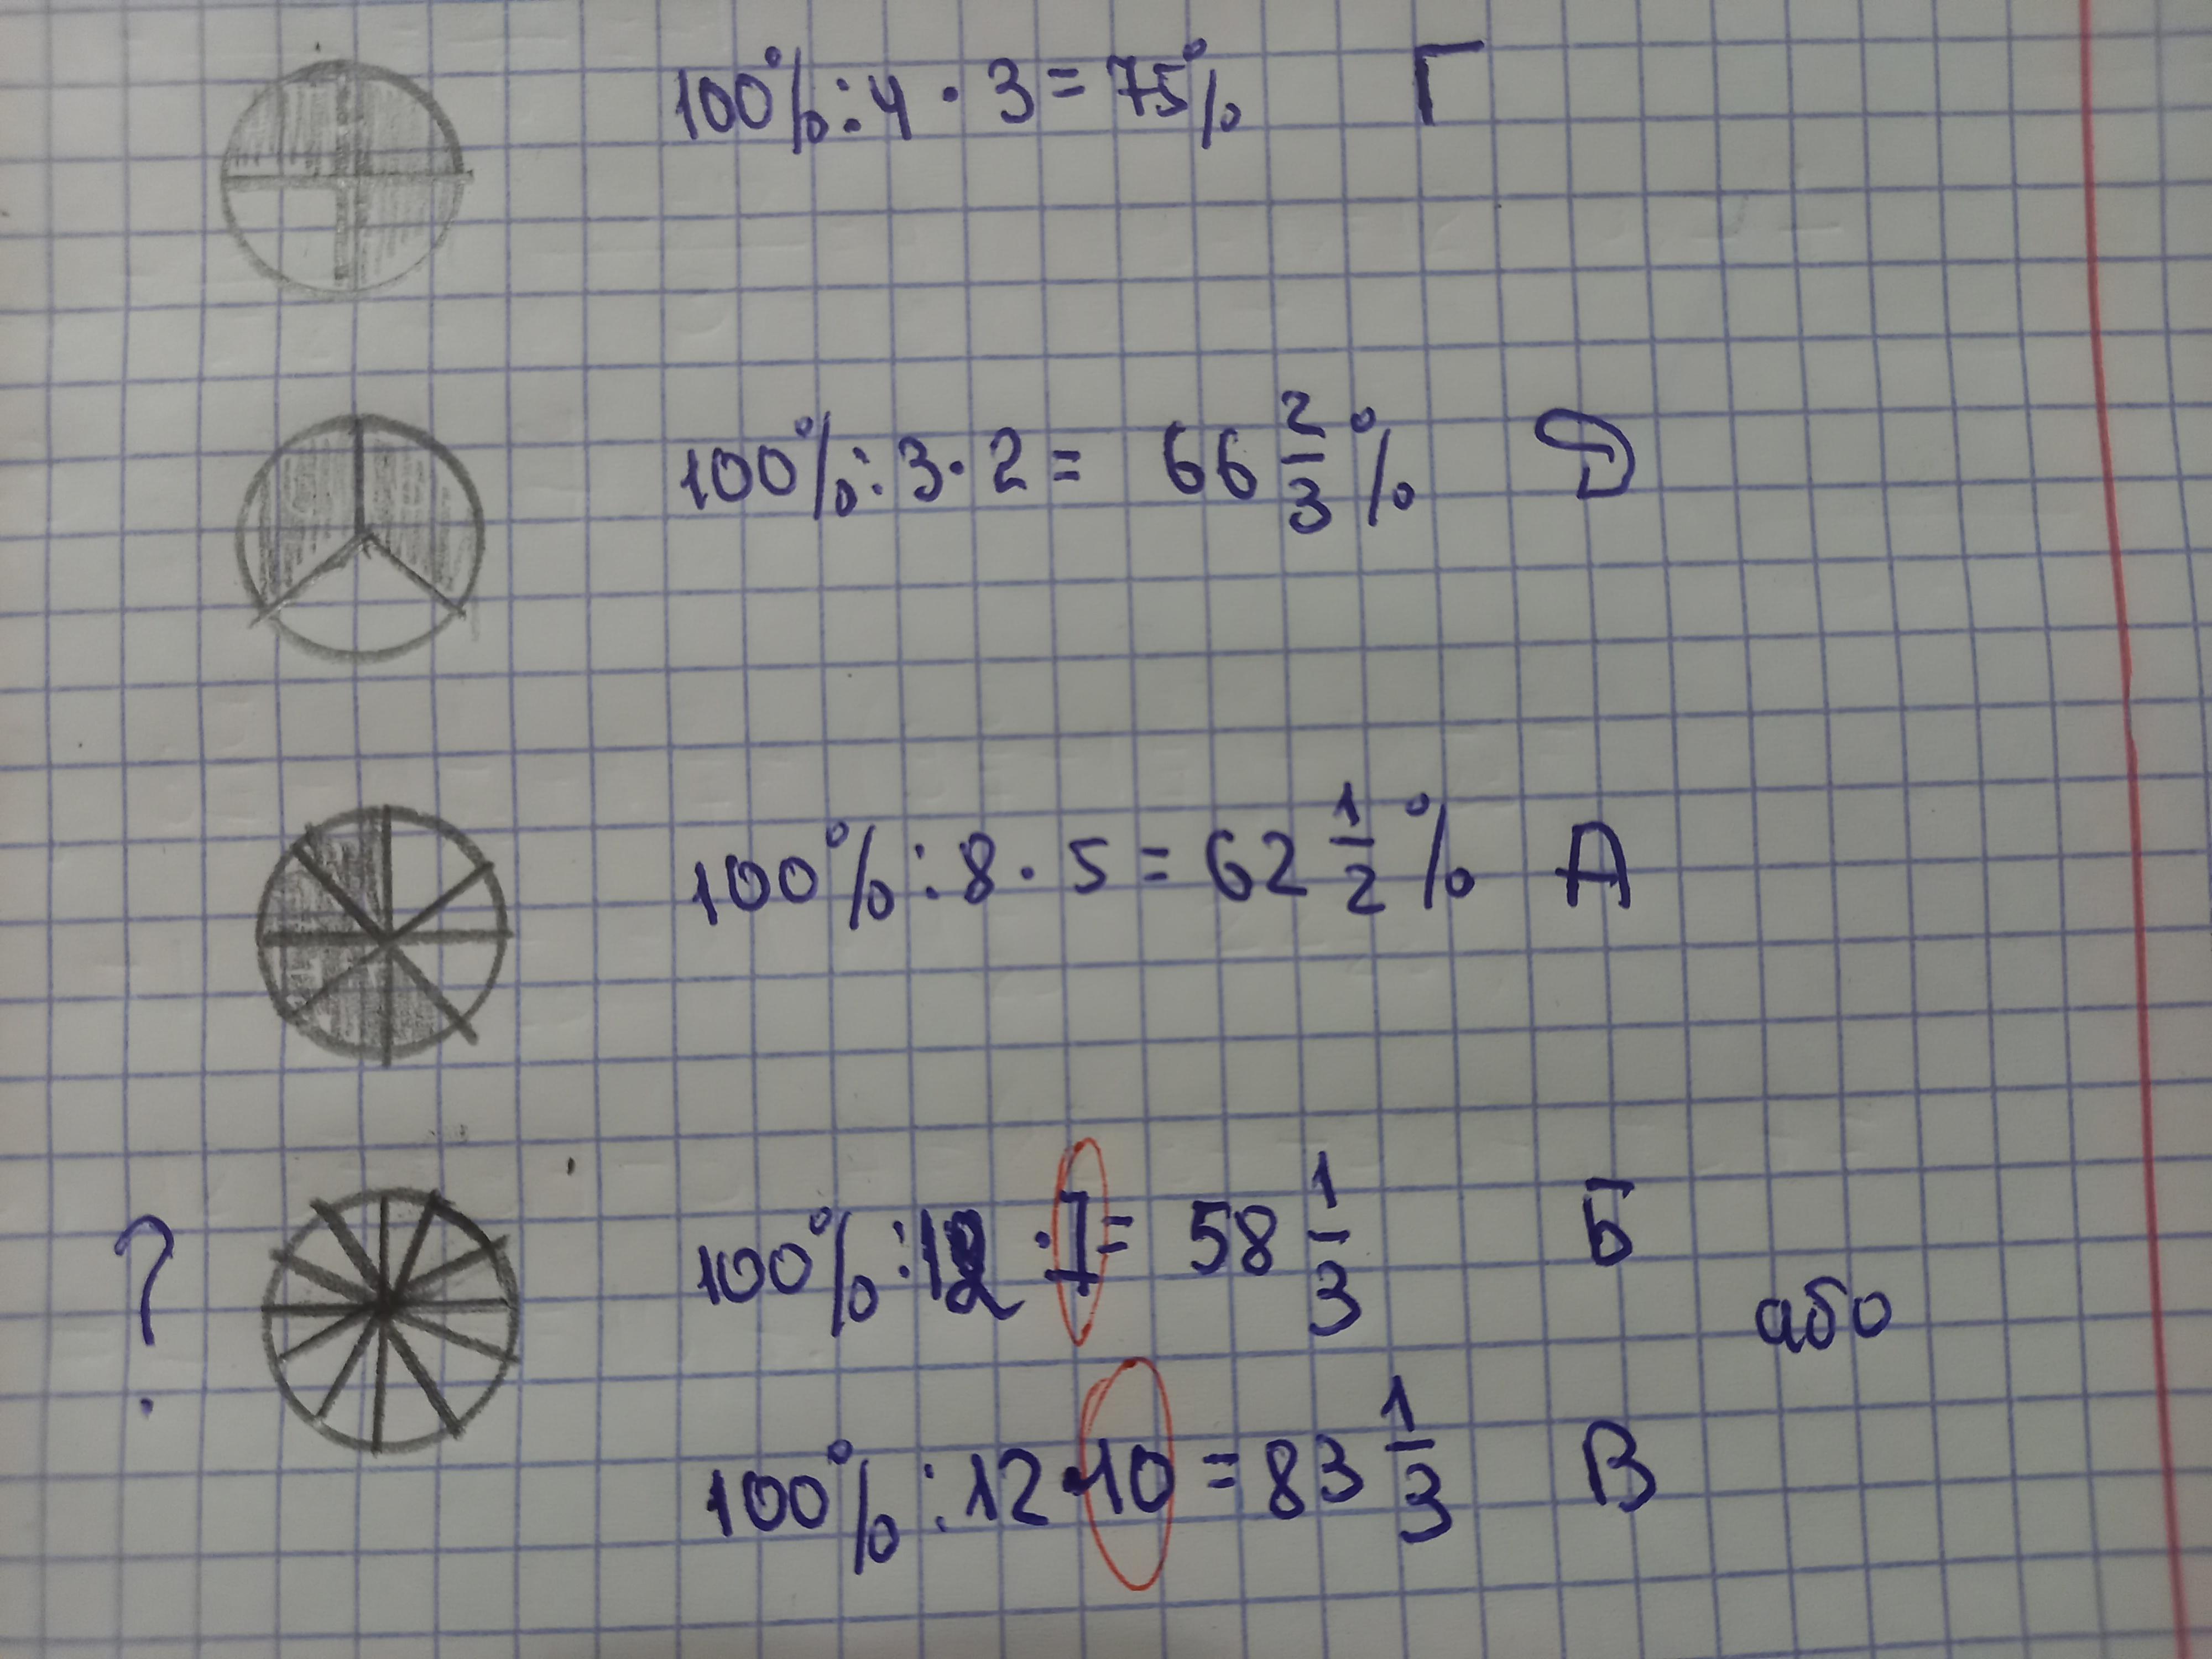 100%:4·3=75% Г
100%:3·2= 66 2/3 % D
100%:8·5=62 1/2 % А
? 100%:12·7= 58 1/3 Б
або
100%:12·10=83 1/3 В